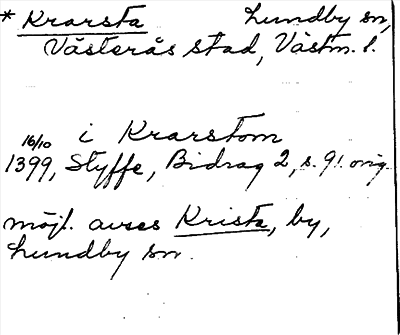 * Krarsta Lundby sn,
Västerås stad, Västm. l.
16/10 i Krarstom
1399, Styffe, Bidrag 2, s. 91. orig.
möjl. avses Krista, by,
Lundby sn.